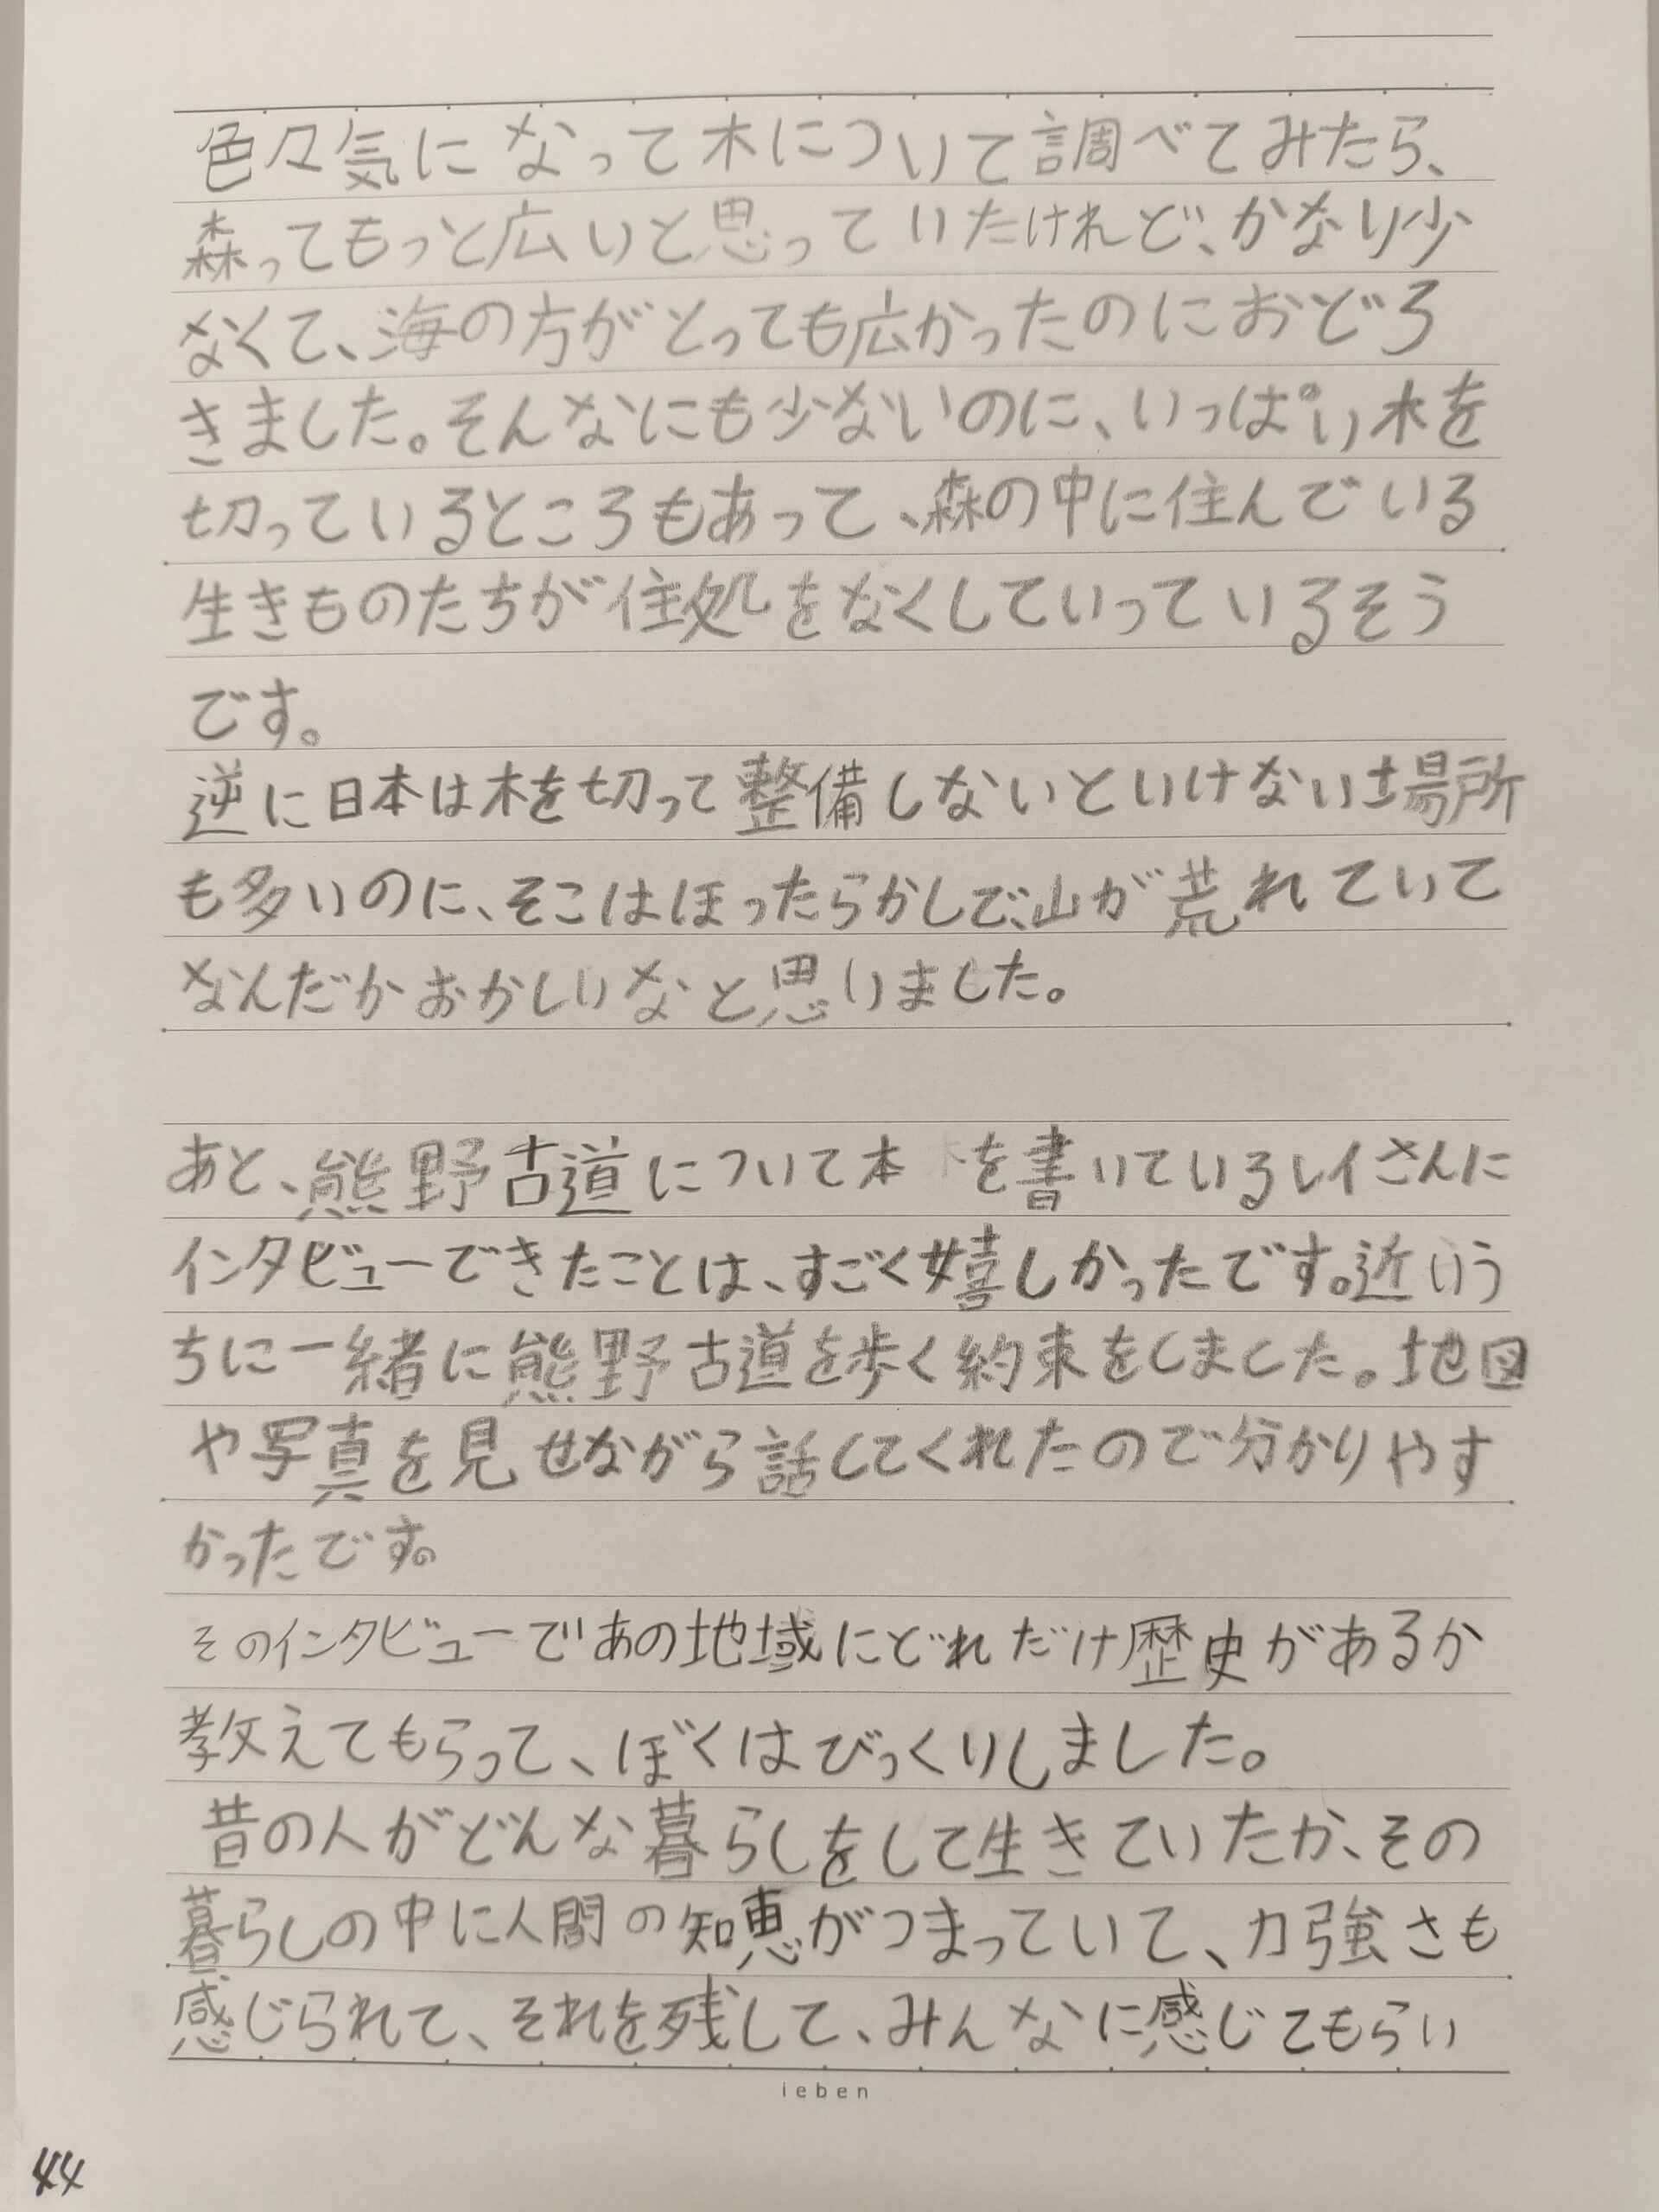 色々気になって木について調べてみたら、
森ってもっと広いと思っていたけれど、かなり少
なくて、海の方がとっても広かったのにおどろ
きました。そんなにも少ないのに、いっぱい木を
切っているところもあって、森の中に住んでいる
生きものたちが住処をなくしていっているそう
です。
逆に日本は木を切って整備しないといけない場所
も多いのに、そこはほったらかしで、山が荒れていて
なんだかおかしいなと思いました。
あと、熊野古道について本を書いているレイさんに
インタビューできたことは、すごく嬉しかったです。近いう
ちに一緒に熊野古道を歩く約束をしました。地図
や写真を見せながら話してくれたので分かりやす
かったです。
そのインタビューであの地域にどれだけ歴史があるか
教えてもらって、ぼくはびっくりしました。
昔の人がどんな暮らしをして生きていたか、その
暮らしの中に人間の知恵がつまっていて、力強さも
感じられて、それを残して、みんなに感じてもらい
ieben
44